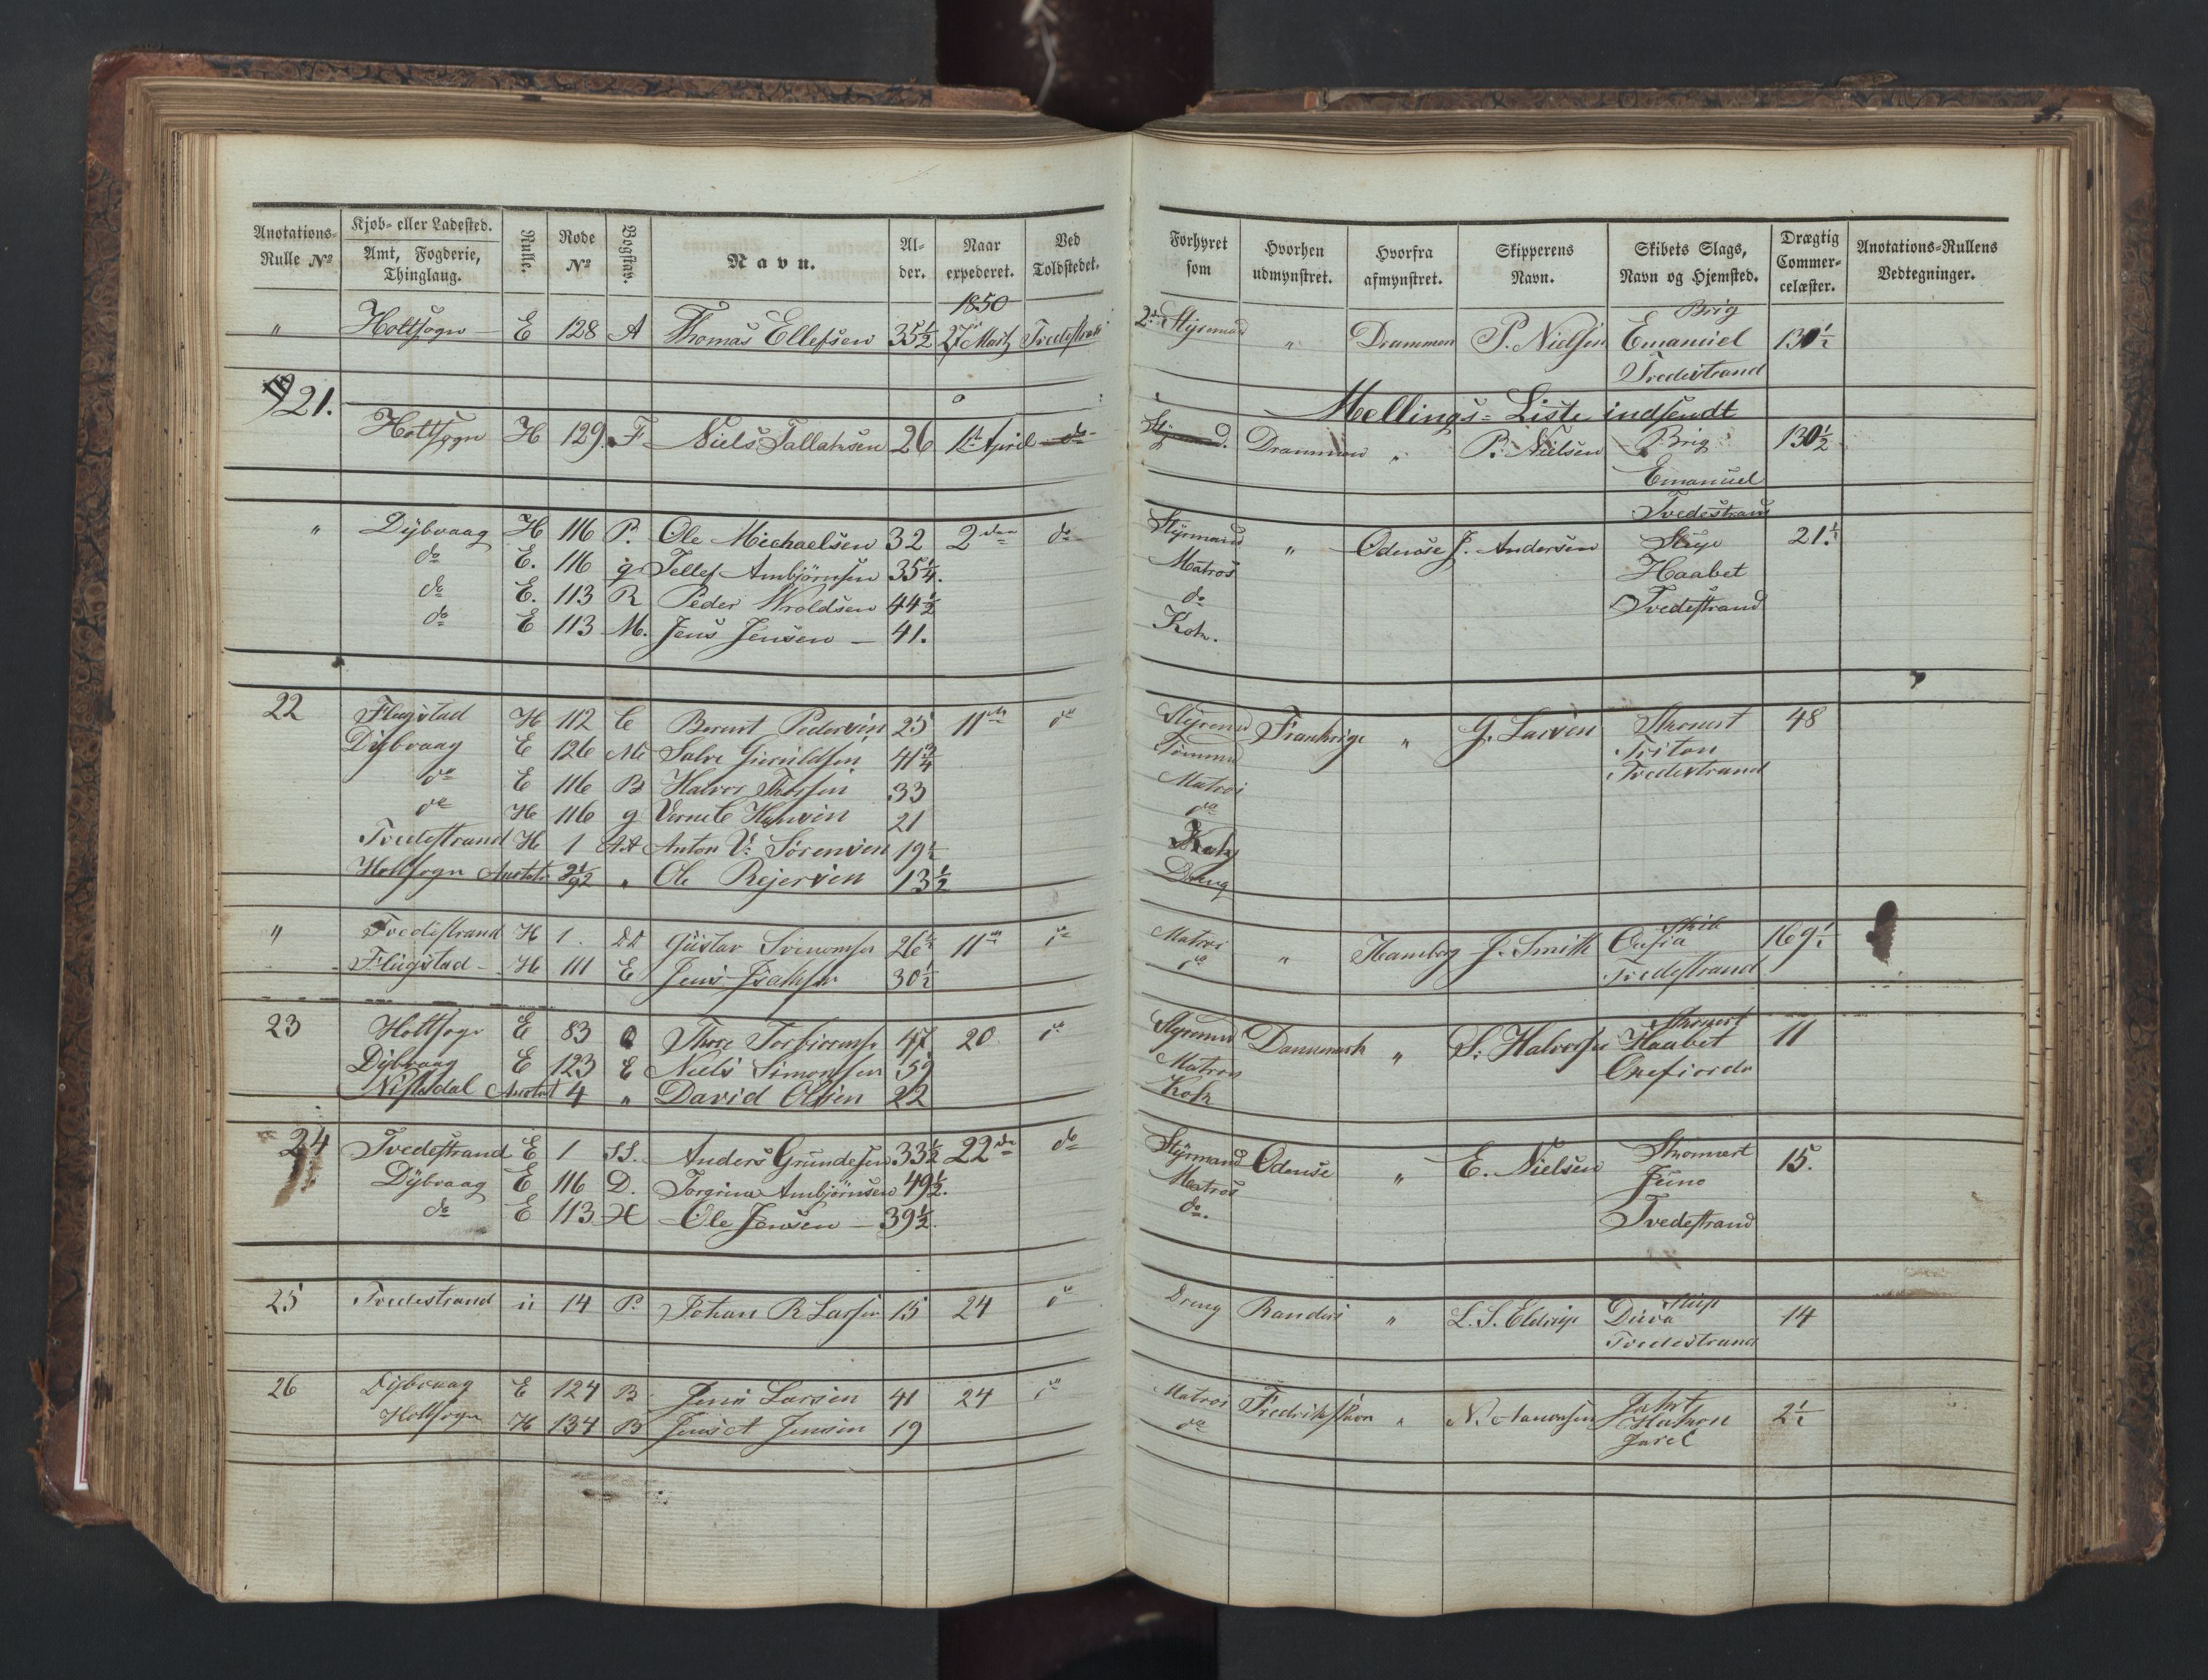 Anotations-Rulle No
Kjøb- eller Ladested.
Amt, Fogderie, Thinglaug.
Rulle.
Rode No
Bogstav.
Navn.
Alder.
Naar expederet.
Ved Toldstedet.
Forhyret som
Hvorhen udmynstret.
Hvorfra afmynstret.
Skipperens Navn.
Skibets Slags, Navn og Hjemsted.
Drægtig Commercelæster.
Anotations-Rullens Vedtegninger.
1850 Brig
" Holtsogn E 128 A Thomas Ellefsen 35½ 27 Martz Tvedestrand 2. Styrmand " Drammen P. Nielsen Emanuel 130½
Tvedestrand
21. Mellings-Liste indsendt
Holtsogn H 129. F Niels Tallaksen 26 1st April do Styrmand. Drammen " P. Nielsen Brig 130½
Emanuel
Tvedestrand
" Dybvaag H 116 P. Ole Michaelsen 32 2den do Styrmand " Odense J. Andersen Slup 21½
do E. 116 g Tellef Ambjörnsen 35¼. Matros Haabet
do E. 113 R Peder Wroldsen 44½ do Tvedestrand
do E 113 M. Jens Jensen 41. Kok.
22 Flugstad H 112 C Berent Pedersen 25 11te do Styrmd Frankrige " G. Larsen Skonert 48
Dybvaag E 126 M Salve 41¾ Tømmmd Triton
do E 116 B Halvor Thorsen 33 Matros Tvedestrand
do H 116 g Hansen 21 do
Tvedestrand H 1 AA Anton V. Sörensen 19½ Kok
Holtsogn Anotat " Ole Rejersen 13½ Dreng
" Tvedestrand H 1. Gustav 26½ 11te do Matros " Hamborg J. Smith Skib 169½
Flugstad H 111 E Jens Isaksen 30½ do Tvedestrand
23 Holtsogn E 83 Thore Torbiørnsen 47 20 do Styrmand Dannemark " S. Halvorsen Skonert Haabet 11
Dybvaag E 123 E Niels Simonsen 59 Matros
Anotat 4 " David Olsen 22 Kok
24 Tvedestrand E 1 SS. Anders Grundesen 33½ 22de do Styrmand Odense " E. Nielsen Skonnert 15.
Dybvaag E 116 D. Torgrim Ambjörnsen 49½. Matros Juno
do E 113 H Ole Jensen 39½. do. Tvedestrand
25 Tvedestrand u 14 P. Johan R Larsen 15 24 do Dreng Randers " L. S. Slup 14
Tvedestrand
26 Dybvaag E 124 B Jens Larsen 41 24 do Matros Fredrikshavn " N. Aanonsen Jakt 2½
Holtsogn H 134 B Jens A Jensen 19 do Hakon